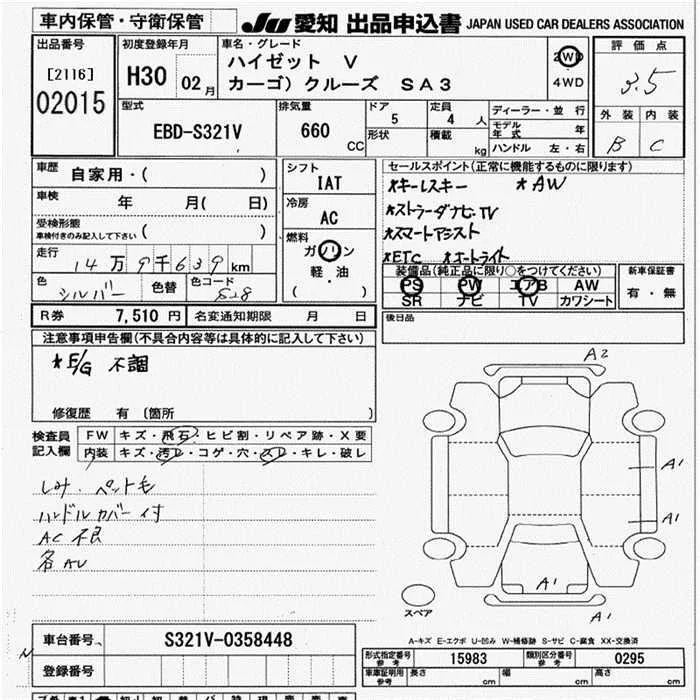 車内保管・守衛保管 JU 愛知 出品申込書 JAPAN USED CAR DEALERS ASSOCIATION
出品番号 [2116] 02015
初度登録年月 H30 02月
車名・グレード ハイゼット V
カーゴ) クルーズ SA3
2WD
4WD
評価点 3.5
外装 内装
B C
型式 EBD-S321V
排気量 660 CC
ドア 5
定員 4 人
形状 積載 kg
ディーラー・並行
モデル年式 年
ハンドル 左・右
車歴 自家用・( )
車検 年 月( 日)
受検形態 車検付きのみ記入して下さい ( )
走行 14万9千639km
色 シルバー 色替 色コード S28
シフト IAT
冷房 AC
燃料 ガソリン
軽・油
( )
セールスポイント(正常に機能するものに限ります)
*キーレスキー *AW
*ストラーダナビ.TV
*スマートアシスト
*ETC *オートライト
装備品(純正品に限り○をつけてください)
PS PW エアB AW
SR ナビ TV カワシート
新車保証書
有・無
R券 7,510 円 名変通知期限 月 日
後日品
注意事項申告欄(不具合内容等は具体的に記入して下さい)
*E/G 不調
修復歴 有 (箇所 )
検査員記入欄
FW キズ・飛石・ヒビ割・リペア跡・X要
内装 キズ・汚レ・コゲ・穴・スレ・キレ・破レ
しみ・ペット毛
ハンドルカバー付
AC 不良
各AU
A2
A1
A1
A1
A1
スペア
A-キズ E-エクボ U-凹み W-補修跡 S-サビ C-腐食 XX-交換済
車台番号 S321V-0358448
登録番号
型式指定番号 参考 15983
類別区分番号 参考 0295
車庫証明用 参考 長さ cm 幅 cm 高さ cm